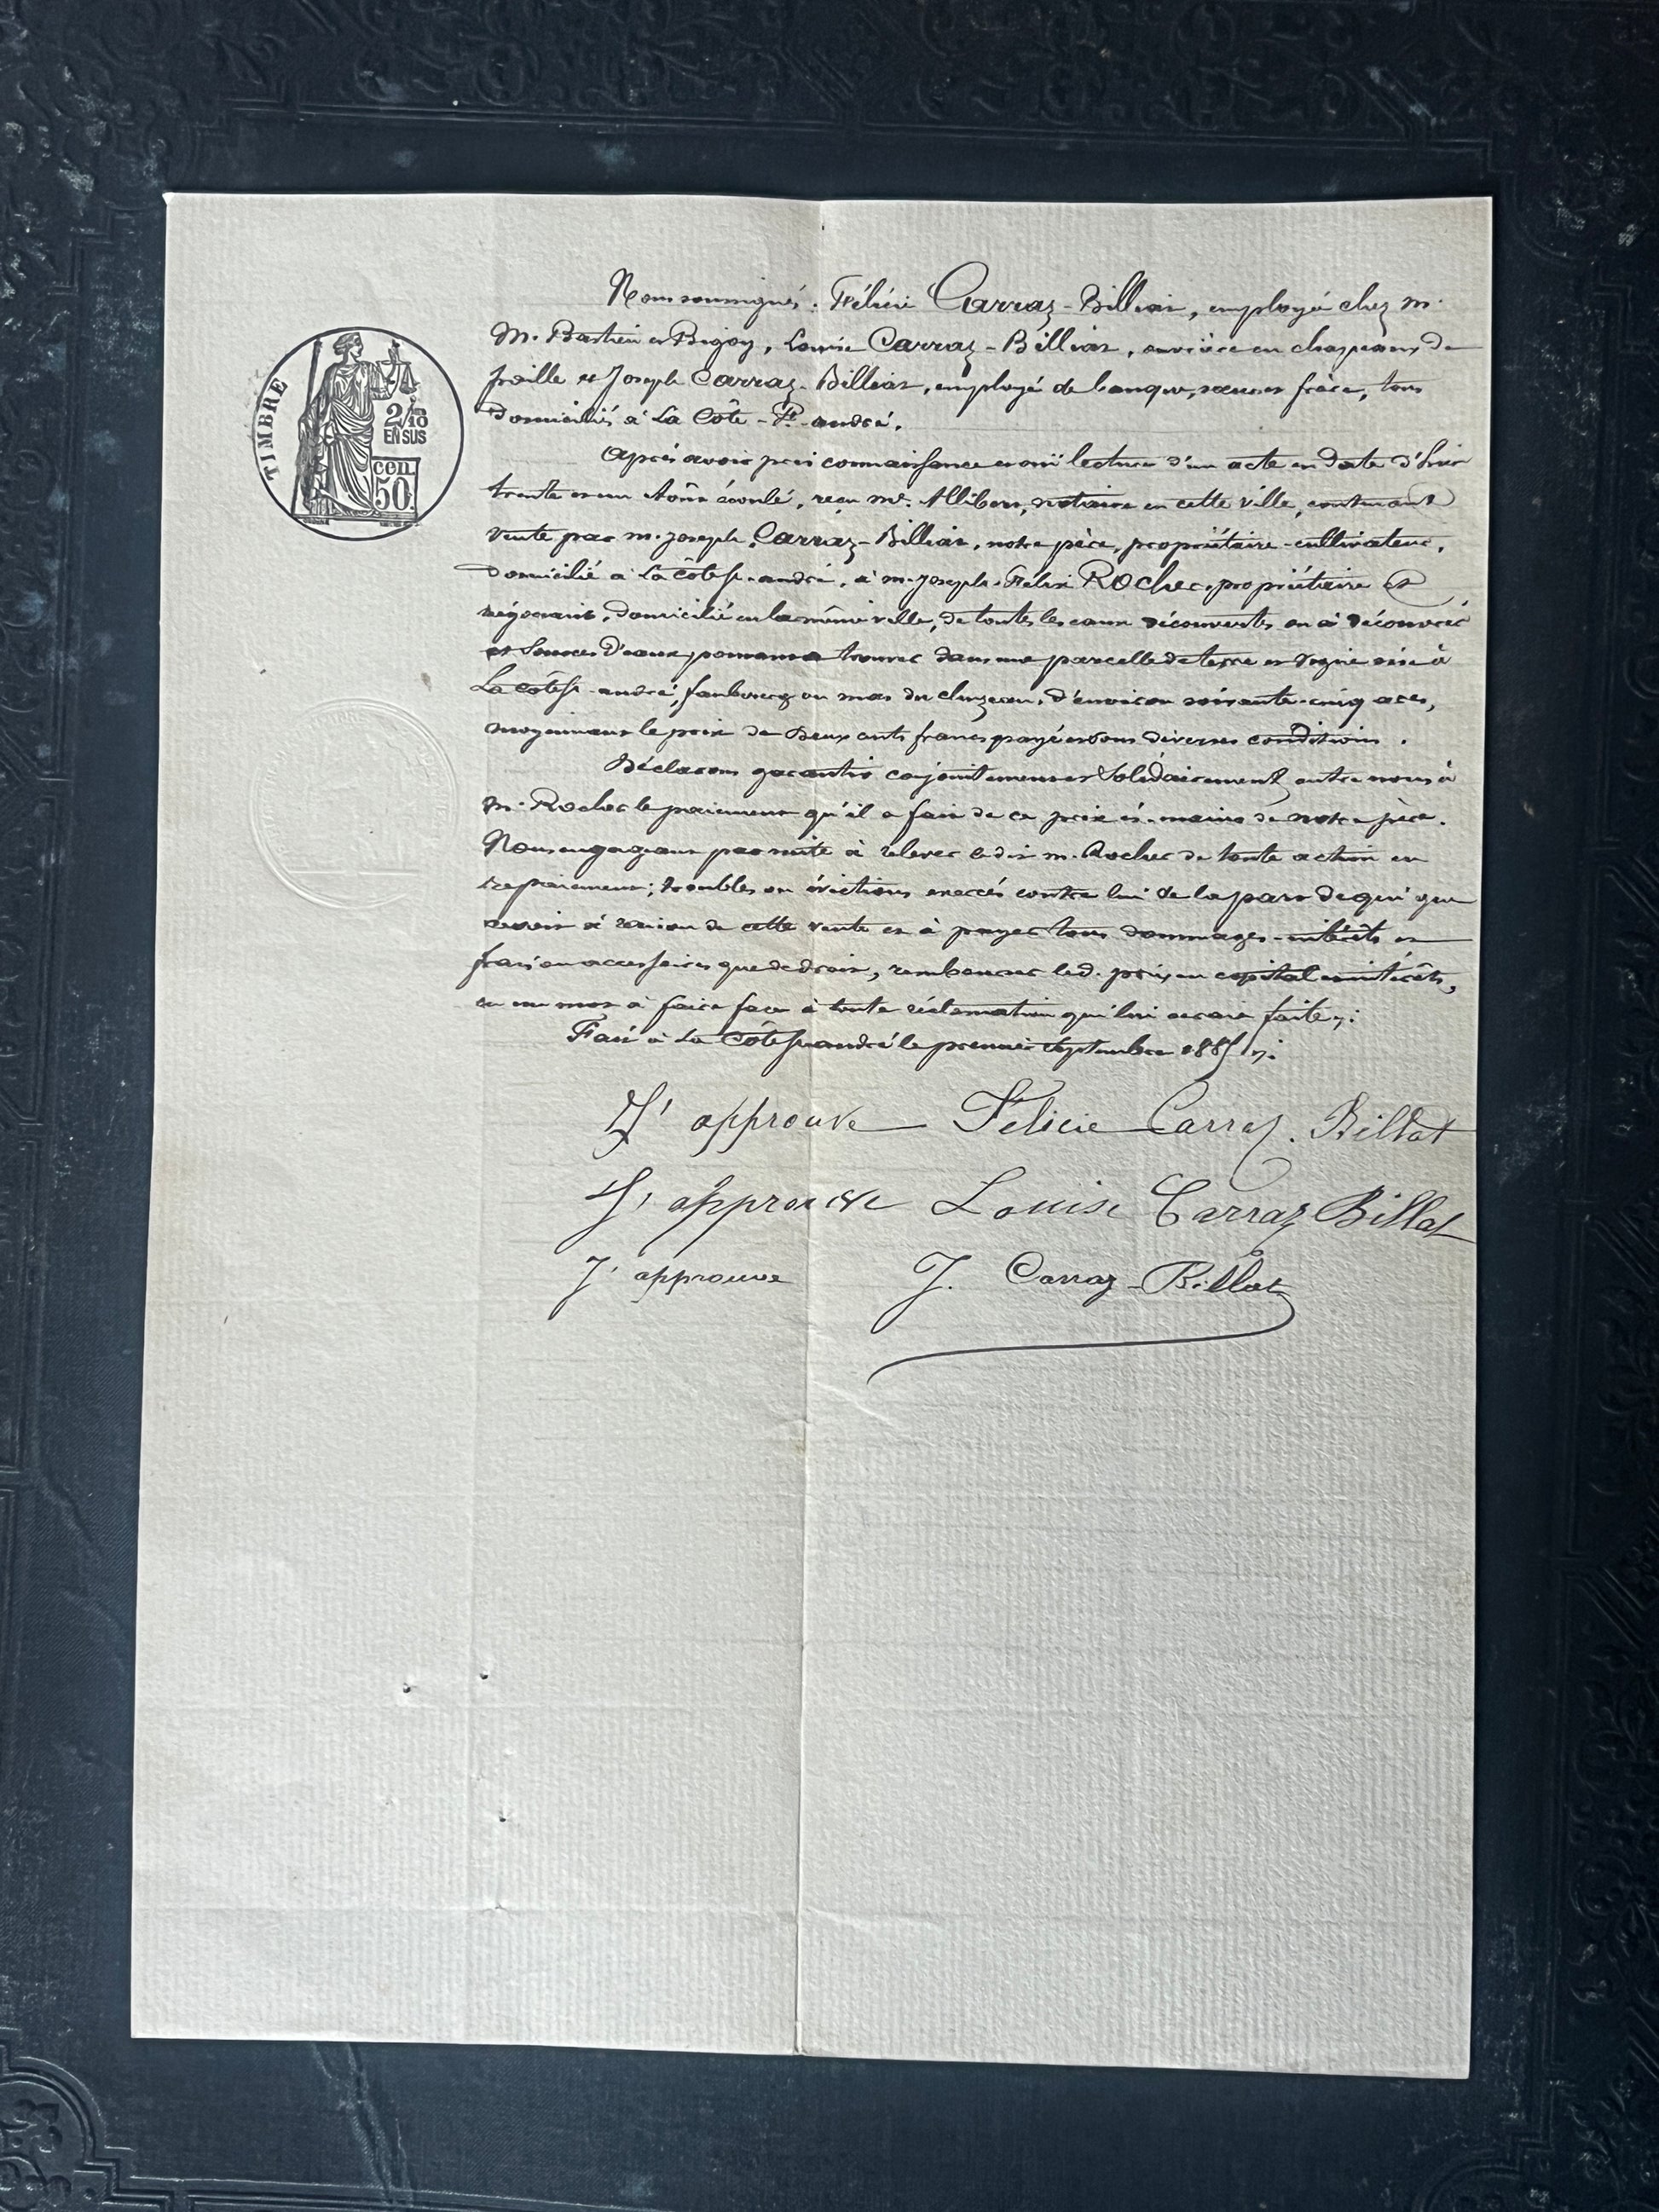 TIMBRE
2/10
EN SUS
cen
50
Nous soussignés. Félicie Carraz-Billiat, employée chez m.
M. Bastien et Bigoy, Louise Carraz-Billiat, ouvrière en chapeaux de
paille et Joseph Carraz-Billiat, employé de banque, sœurs et frère, tous
Domiciliés à La Côte-St-andré.
après avoir pris connaissance et ouï lecture d'un acte en Date d'hier
trente et un Août écoulé, reçu me. Allibert, notaire en cette ville, contenant
vente par m. Joseph Carraz-Billiat, notre père, propriétaire-cultivateur,
Domicilié à La Côte St-andré, à m. Joseph-Félix ROcher, propriétaire et
négociant, Domicilié en la même ville, de toutes les eaux découvertes ou à découvrir
et Sources D'eaux pouvant se trouver dans une parcelle de terre et vigne sise à
La Côte St-andré, faubourg ou mas du chuzeau, d'environ soixante-cinq ares,
moyennant le prix de Deux cents francs payé et sous diverses conditions.
Déclarons garantir conjointement et Solidairement entre nous à
m. Rocher le paiement qu'il a fait de ce prix ès-mains de notre père.
Nous engageant par suite à relever ledit m. Rocher de toute action en
repaiement; troubles ou évictions exercés contre lui de la part de qui que
ce soit à raison de cette vente et à payer tous dommages-intérêts et
frais ou accessoires que de droit, rembourser led. prix en capital et intérêts,
en un mot à faire face à toute réclamation qui lui serait faite
Fait à La Côte St andré le premier Septembre 1885
J'approuve Félicie Carraz. Billat
J'approuve Louise Carraz Billat
J'approuve J. Carraz-Billat